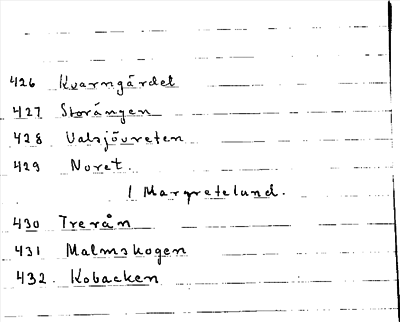 426 Kvarngärdet
427 Storängen
428 Valsjövreten
429 Noret.
1 Margretelund.
430 Trerån
431 Malmskogen
432. Kobacken